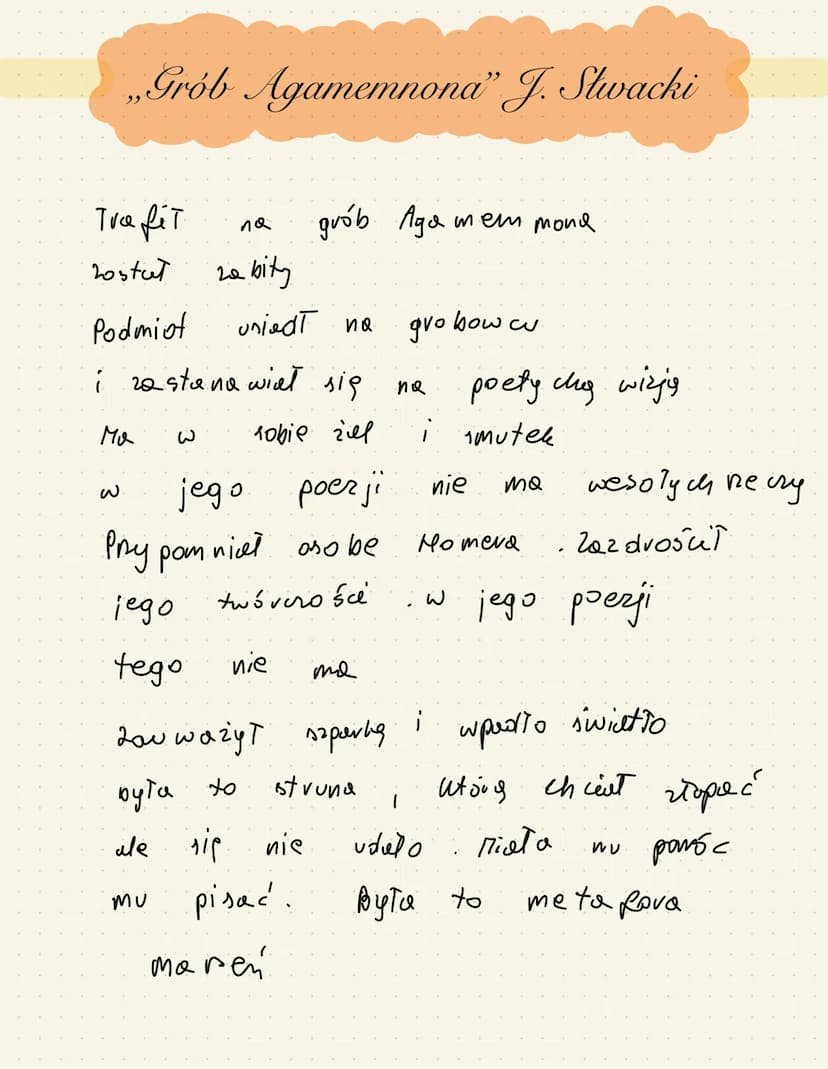 „Grób Agamemnona” J. Słwacki
Trafił na grób Agamemnona
został zabity
Podmiot usiadł na grobowcu
i zastanawiał się na poetycką wizją
Ma w sobie żal i smutek
w jego poezji nie ma wesołych rzeczy
Przypomniał osobe Homera . Zazdrościł
jego twórczości . w jego poezji
tego nie ma
zauważył szparkę i wpadło światło
była to struna , którą chciał złapać
ale się nie udało . Miała mu pomóc
mu pisać . Była to metafora
marzeń